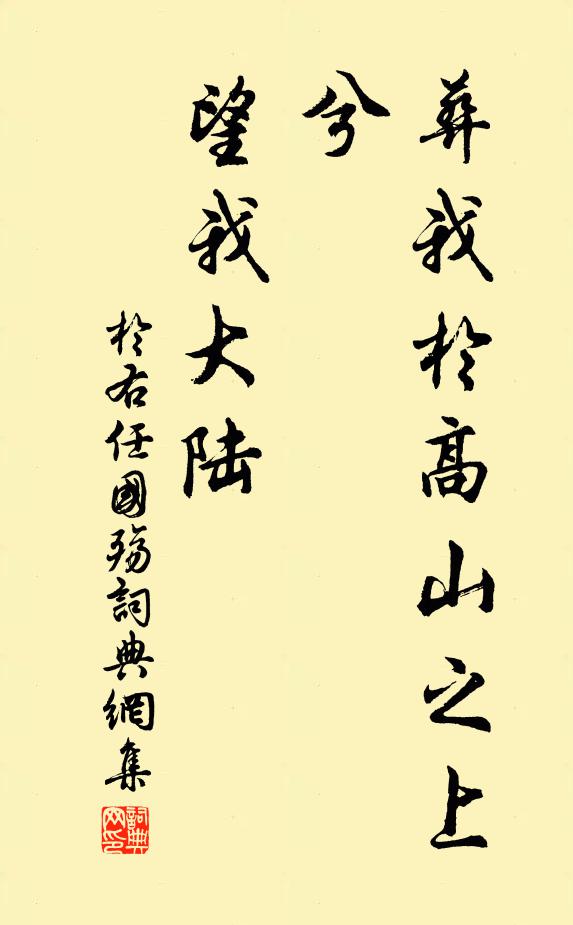 葬我於高山之上
兮
望我大陆
於右任國殇詞典網集
詞典网印